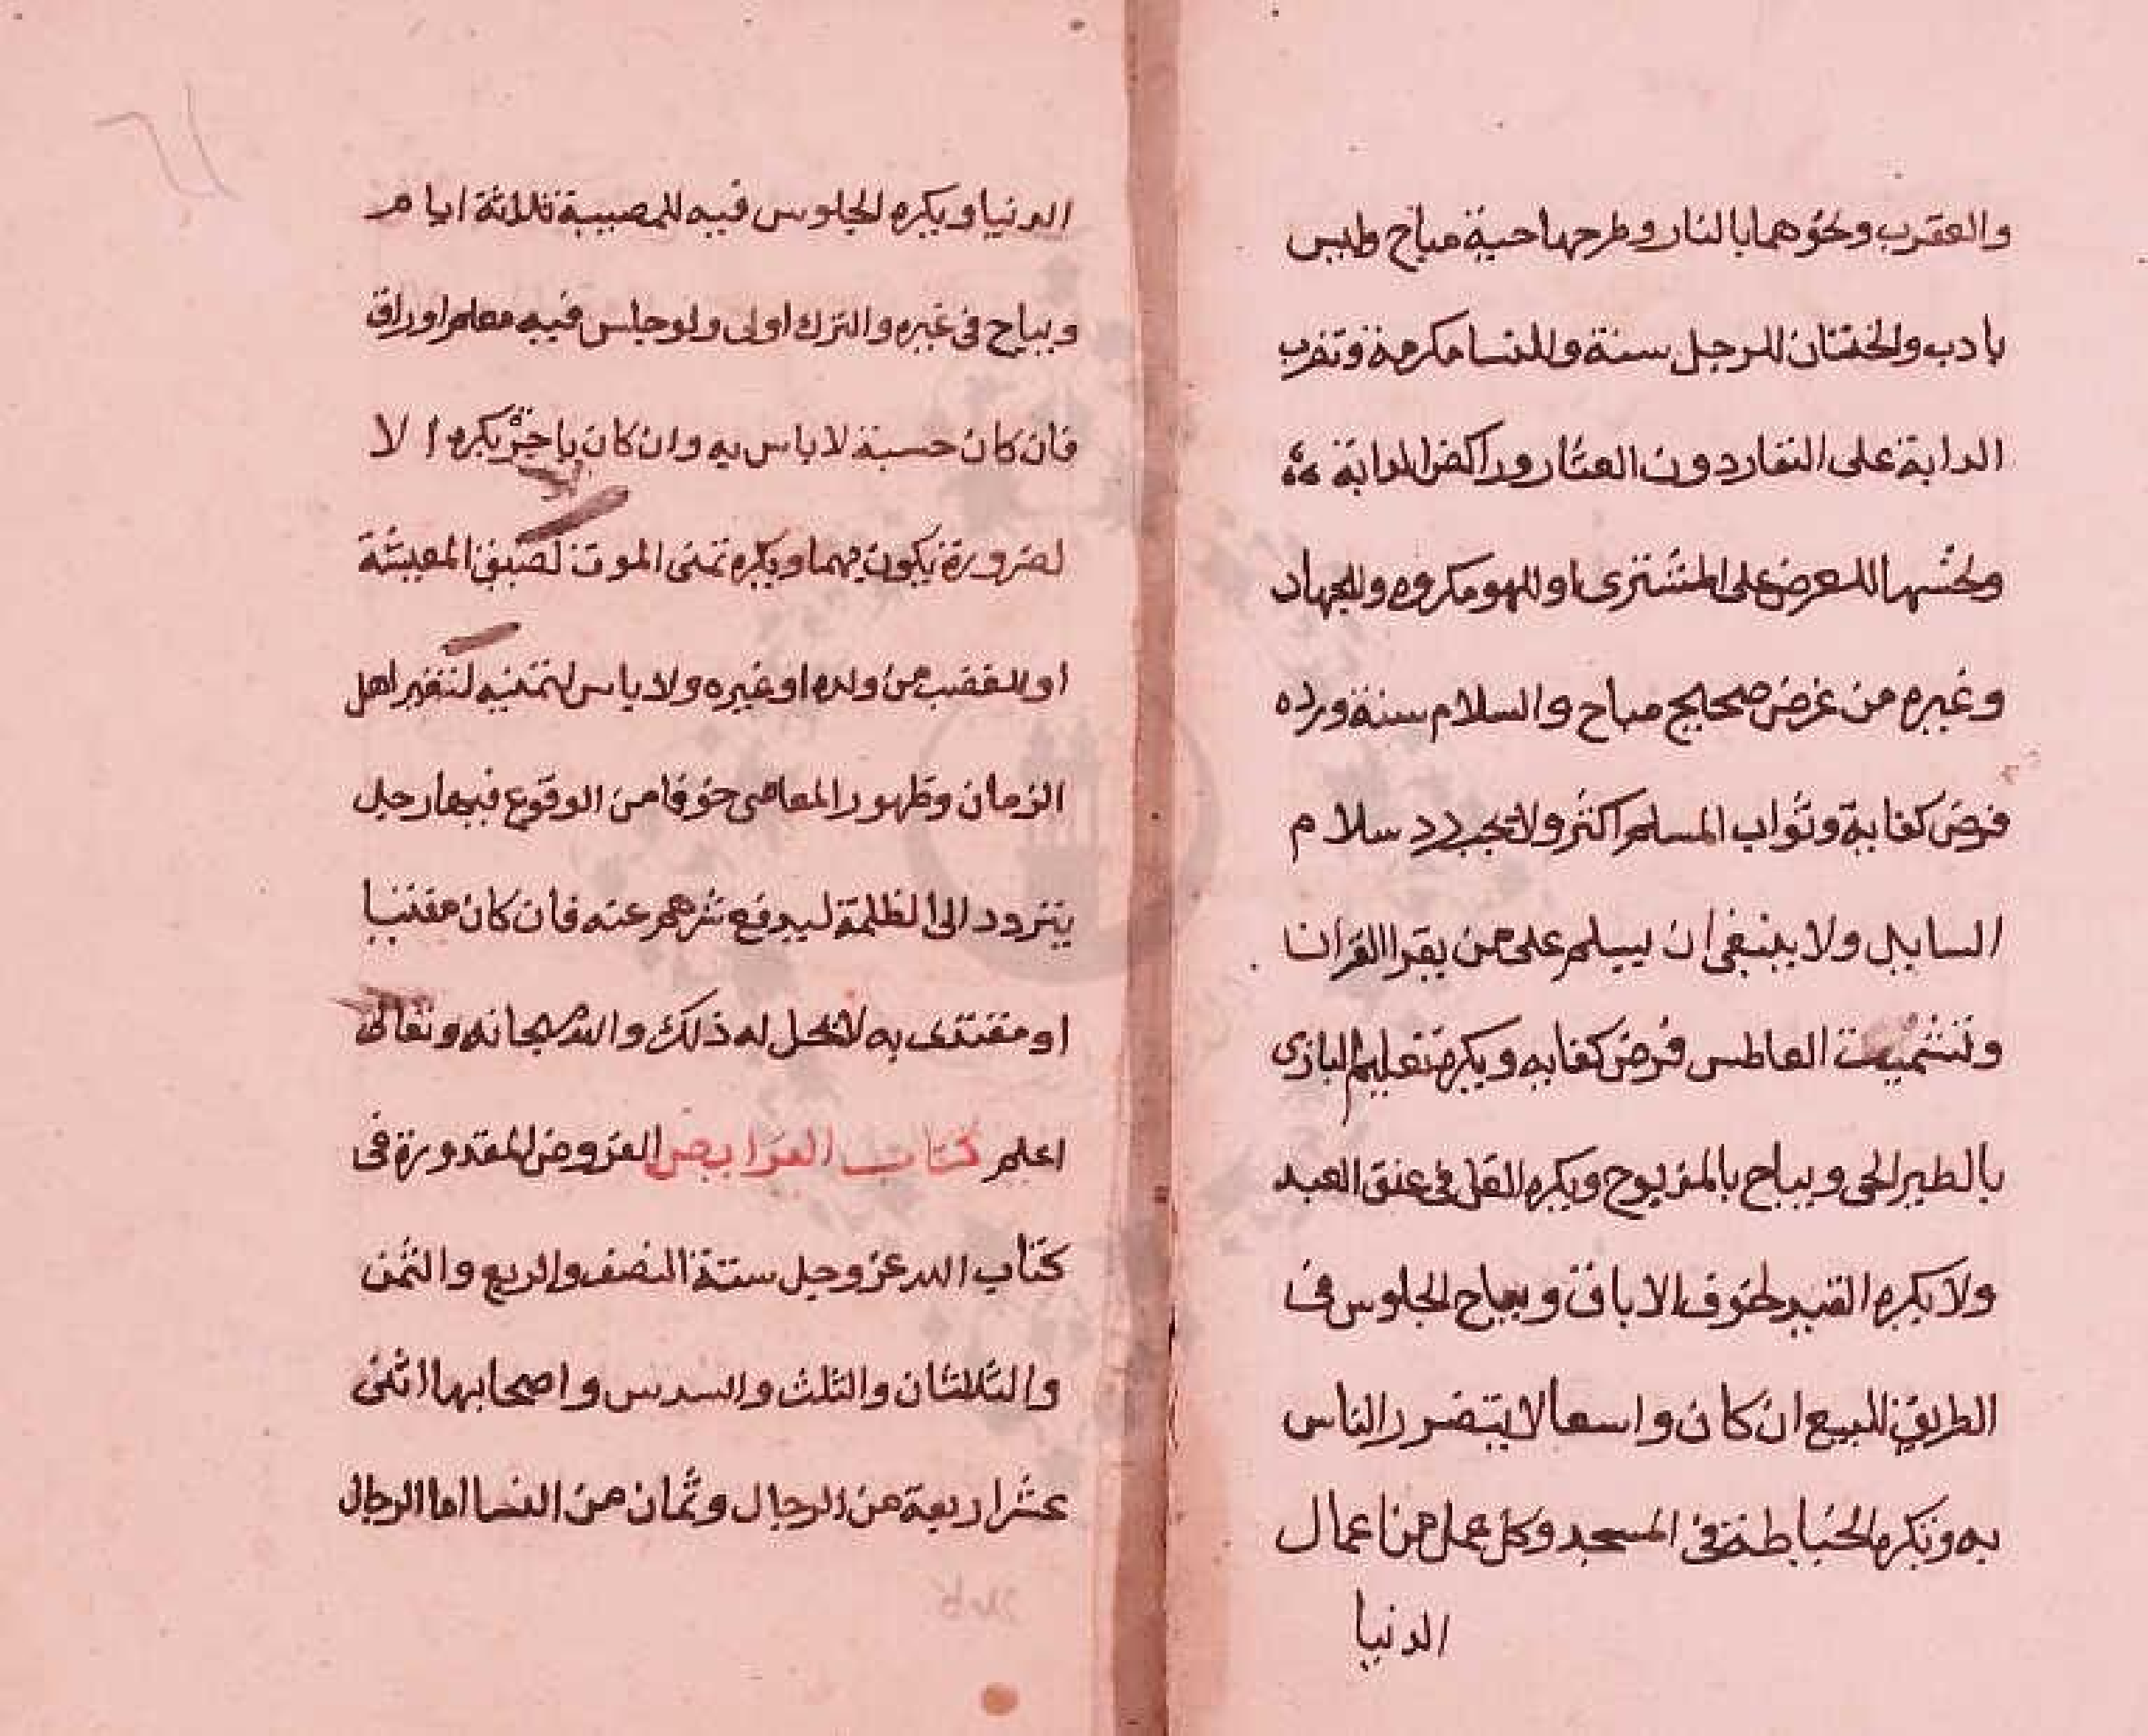 والعقرب ونحوهما بالنار وطرحها حية مباح وليس
بادب والختان للرجل سنة وللنسا مكرمة وتضرب
الدابة على النفار دون العثار وراكض الدابة
ونخسها للعرض على المشترى او للهو مكروه وللجهاد
وغيره من غرض صحيح مباح والسلام سنة ورده
فرض كفاية وثواب المسلم اكثر ولا يجب رد سلام
السايل ولا ينبغى ان يسلم على من يقرا القران
وتشميت العاطس فرض كفايه ويكره تعليم البازى
بالطير الحى ويباح بالمذبوح ويكره الغل فى عنق العبد
ولا يكره القيد لخوف الاباق ويباح الجلوس فى
الطريق للبيع ان كان واسعا لا يتضرر الناس
به وتكره الخياطة فى المسجد وكل عمل من اعمال
الدنيا
الدنيا ويكره الجلوس فيه للمصيبة ثلاثة ايام
ويباح فى غيره والترك اولى ولو جلس فيه معلم او وراق
فان كان حسبة لا باس به وان كان باجرة يكره الا
لضرورة تكون بهما ويكره تمنى الموت لضيق المعيشة
او للغضب من ولده او غيره ولا باس لتمنيه لتغير اهل
الزمان وظهور المعاصى خوفا من الوقوع فيها رجل
يتردد الى الظلمة ليدفع شرهم عنه فان كان مفتيا
او مقتدى به لا يحل له ذلك والله سبحانه وتعالى
اعلم كتاب الفرايض الفروض المقدورة فى
كتاب الله عز وجل ستة النصف والربع والثمن
والثلثان والثلث والسدس واصحابها اثنى
عشر اربعة من الرجال وثمان من النسا اما الرجال